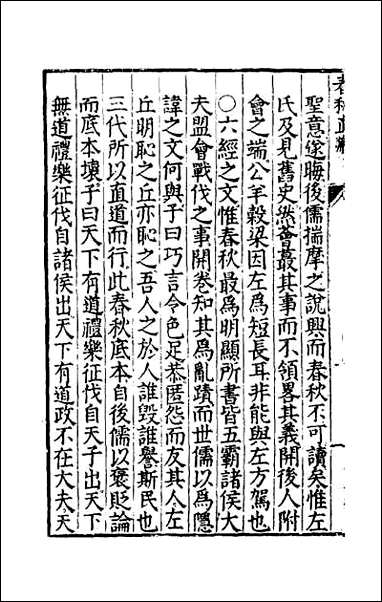 聖意遂晦後儒揣摩之說興而春秋不可讀矣惟左
氏及見舊史然薈蕞其事而不領畧其義開後人附
會之端公羊穀梁因左爲短長耳非能與左方駕也
○六經之文惟春秋最爲明顯所書皆五霸諸侯大
夫盟會戰伐之事開卷知其爲亂蹟而世儒以爲隱
諱之文何與子曰巧言令色足恭匿怨而友其人左
丘明恥之丘亦恥之吾人之於人誰毀誰譽斯民也
三代所以直道而行此春秋底本自後儒以褒貶論
而底本壞子曰天下有道禮樂征伐自天子出天下
無道禮樂征伐自諸侯出天下有道政不在大夫天